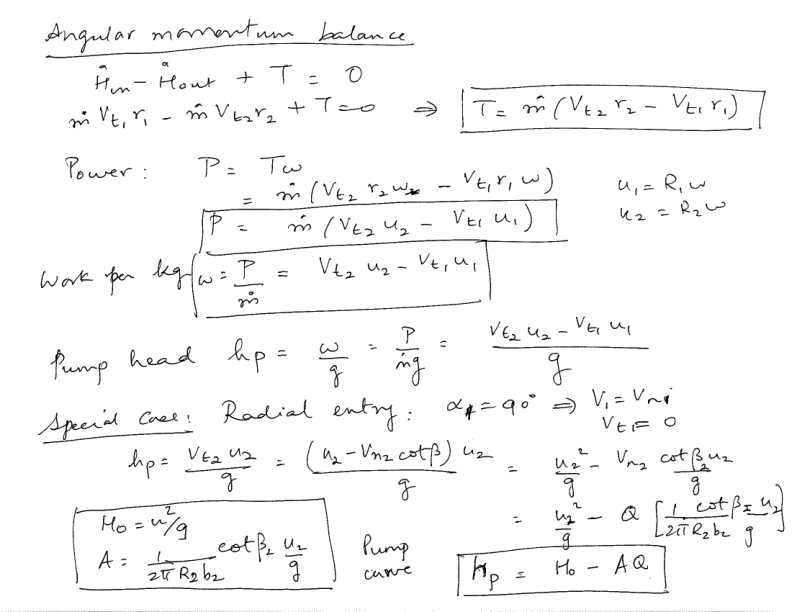 Angular momentum balance
Ḣin - Ḣout + T = 0
ṁ Vt1 r1 - ṁ Vt2 r2 + T = 0 ⇒ T = ṁ (Vt2 r2 - Vt1 r1)
Power : P = Tω
= ṁ (Vt2 r2 ω - Vt1 r1 ω) u1 = R1 ω
P = ṁ (Vt2 u2 - Vt1 u1) u2 = R2 ω
Work per kg w = P/ṁ = Vt2 u2 - Vt1 u1
Pump head hp = w/g = P/ṁg = (Vt2 u2 - Vt1 u1)/g
Special Case : Radial entry : α1 = 90° ⇒ V1 = Vn1
Vt1 = 0
hp = Vt2 u2/g = (u2 - Vn2 cot β) u2/g = u2²/g - Vn2 cot β2 u2/g
= u2²/g - Q [1/(2π R2 b2) cot β2 u2/g]
H0 = u²/g
A = 1/(2π R2 b2) cot β2 u2/g
Pump curve
hp = H0 - AQ